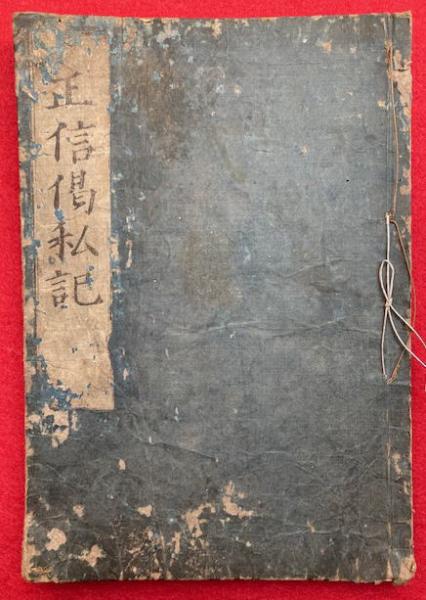 正信偈私記